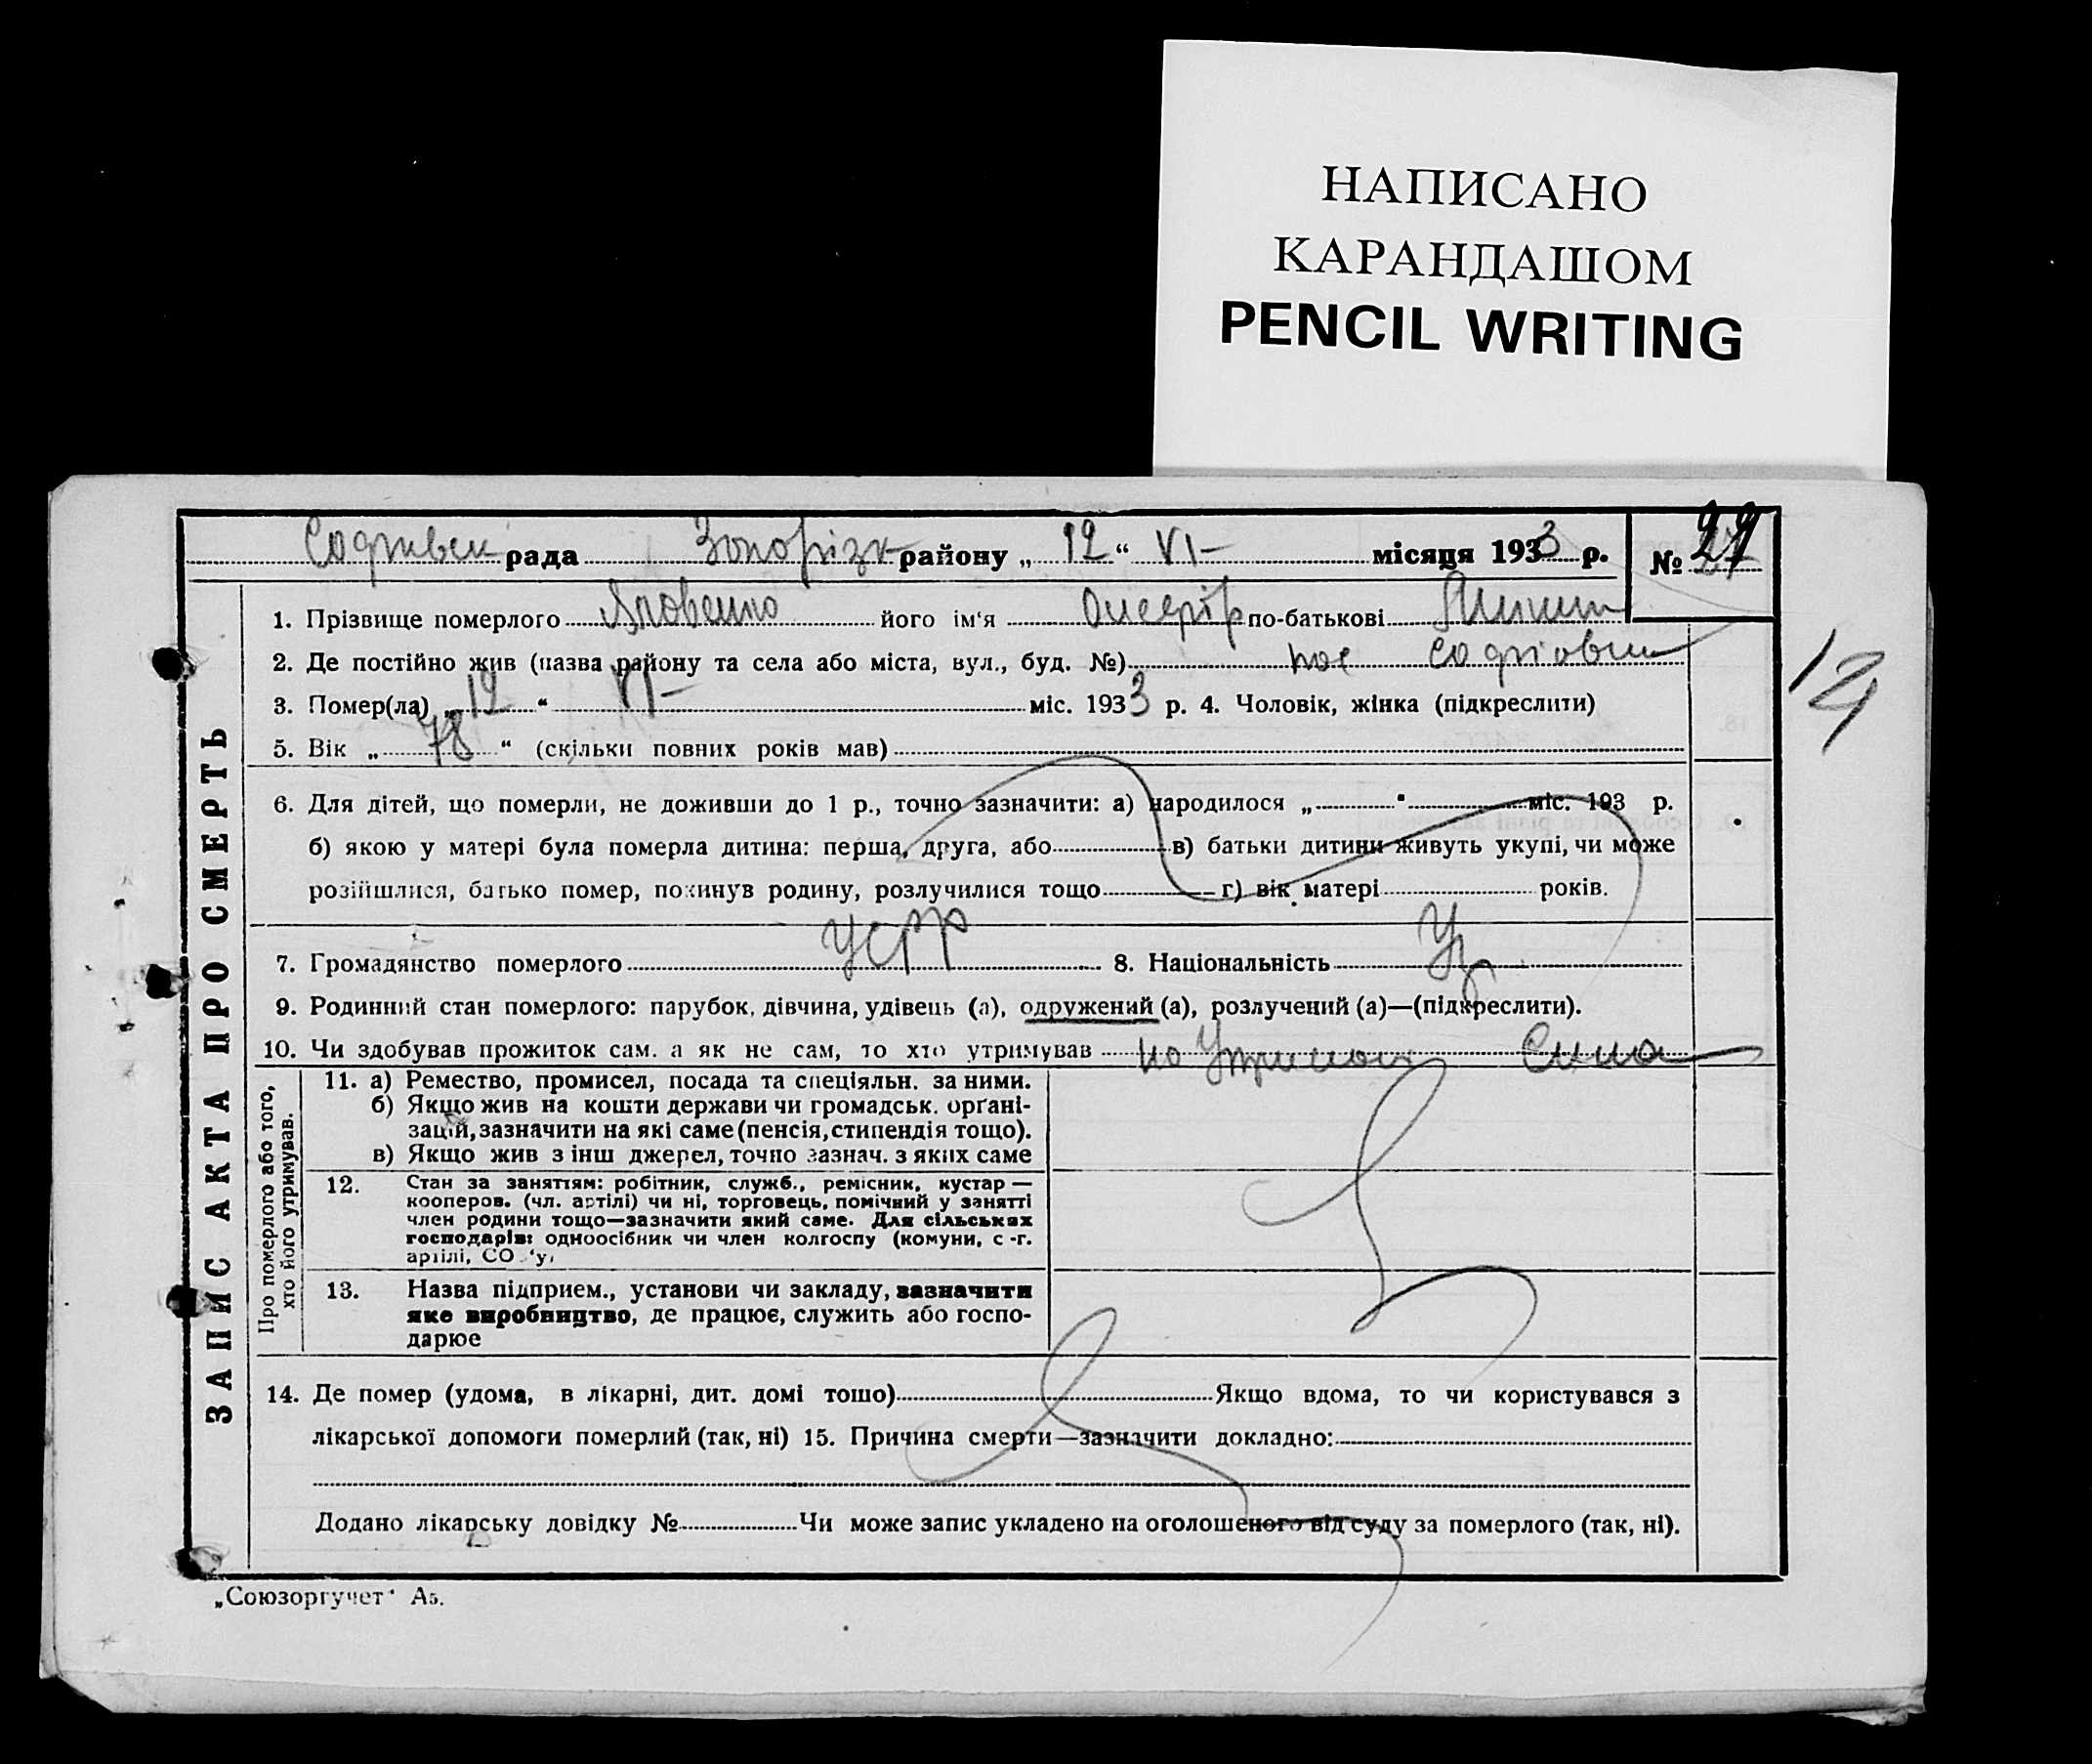 НАПИСАНО
КАРАНДАШОМ
PENCIL WRITING
рада Запорізк району „ 12 “ VI – місяця 1933 р. № 27
1. Прізвище померлого Яковенко його ім'я по-батькові
2. Де постійно жив (назва району та села або міста, вул., буд. №)
3. Помер(ла) „ 12 “ VI – міс. 1933 р. 4. Чоловік, жінка (підкреслити)
5. Вік „ 78 “ (скільки повних років мав)
6. Для дітей, що померли, не доживши до 1 р., точно зазначити: а) народилося „ “ міс. 193 р.
б) якою у матері була померла дитина: перша, друга, або в) батьки дитини живуть укупі, чи може
розійшлися, батько помер, покинув родину, розлучилися тощо г) вік матері років.
7. Громадянство померлого УСРР 8. Національність Ук
9. Родинний стан померлого: парубок, дівчина, удівець (а), одружений (а), розлучений (а)—(підкреслити).
10. Чи здобував прожиток сам. а як не сам, то хто утримував на Утриман Сина
11. а) Ремество, промисел, посада та спеціяльн. за ними.
б) Якщо жив на кошти держави чи громадськ. орґані-
зацій, зазначити на які саме (пенсія, стипендія тощо).
в) Якщо жив з інш джерел, точно зазнач. з яких саме
12. Стан за заняттям: робітник, служб., ремісник, кустар —
кооперов. (чл. артілі) чи ні, торговець, помічний у занятті
член родини тощо—зазначити який саме. Для сільських
господарів: одноосібник чи член колгоспу (комуни, с-г.
артілі, СО
13. Назва підприєм., установи чи закладу, зазначити
яке виробництво, де працює, служить або госпо-
дарює
14. Де помер (удома, в лікарні, дит. домі тошо) Якщо вдома, то чи користувався з
лікарської допомоги померлий (так, ні) 15. Причина смерти—зазначити докладно:
Додано лікарську довідку № Чи може запис укладено на оголошеного від суду за померлого (так, ні).
„Союзоргучет“ А5.
ЗАПИС АКТА ПРО СМЕРТЬ
Про померлого або того,
хто його утримував.